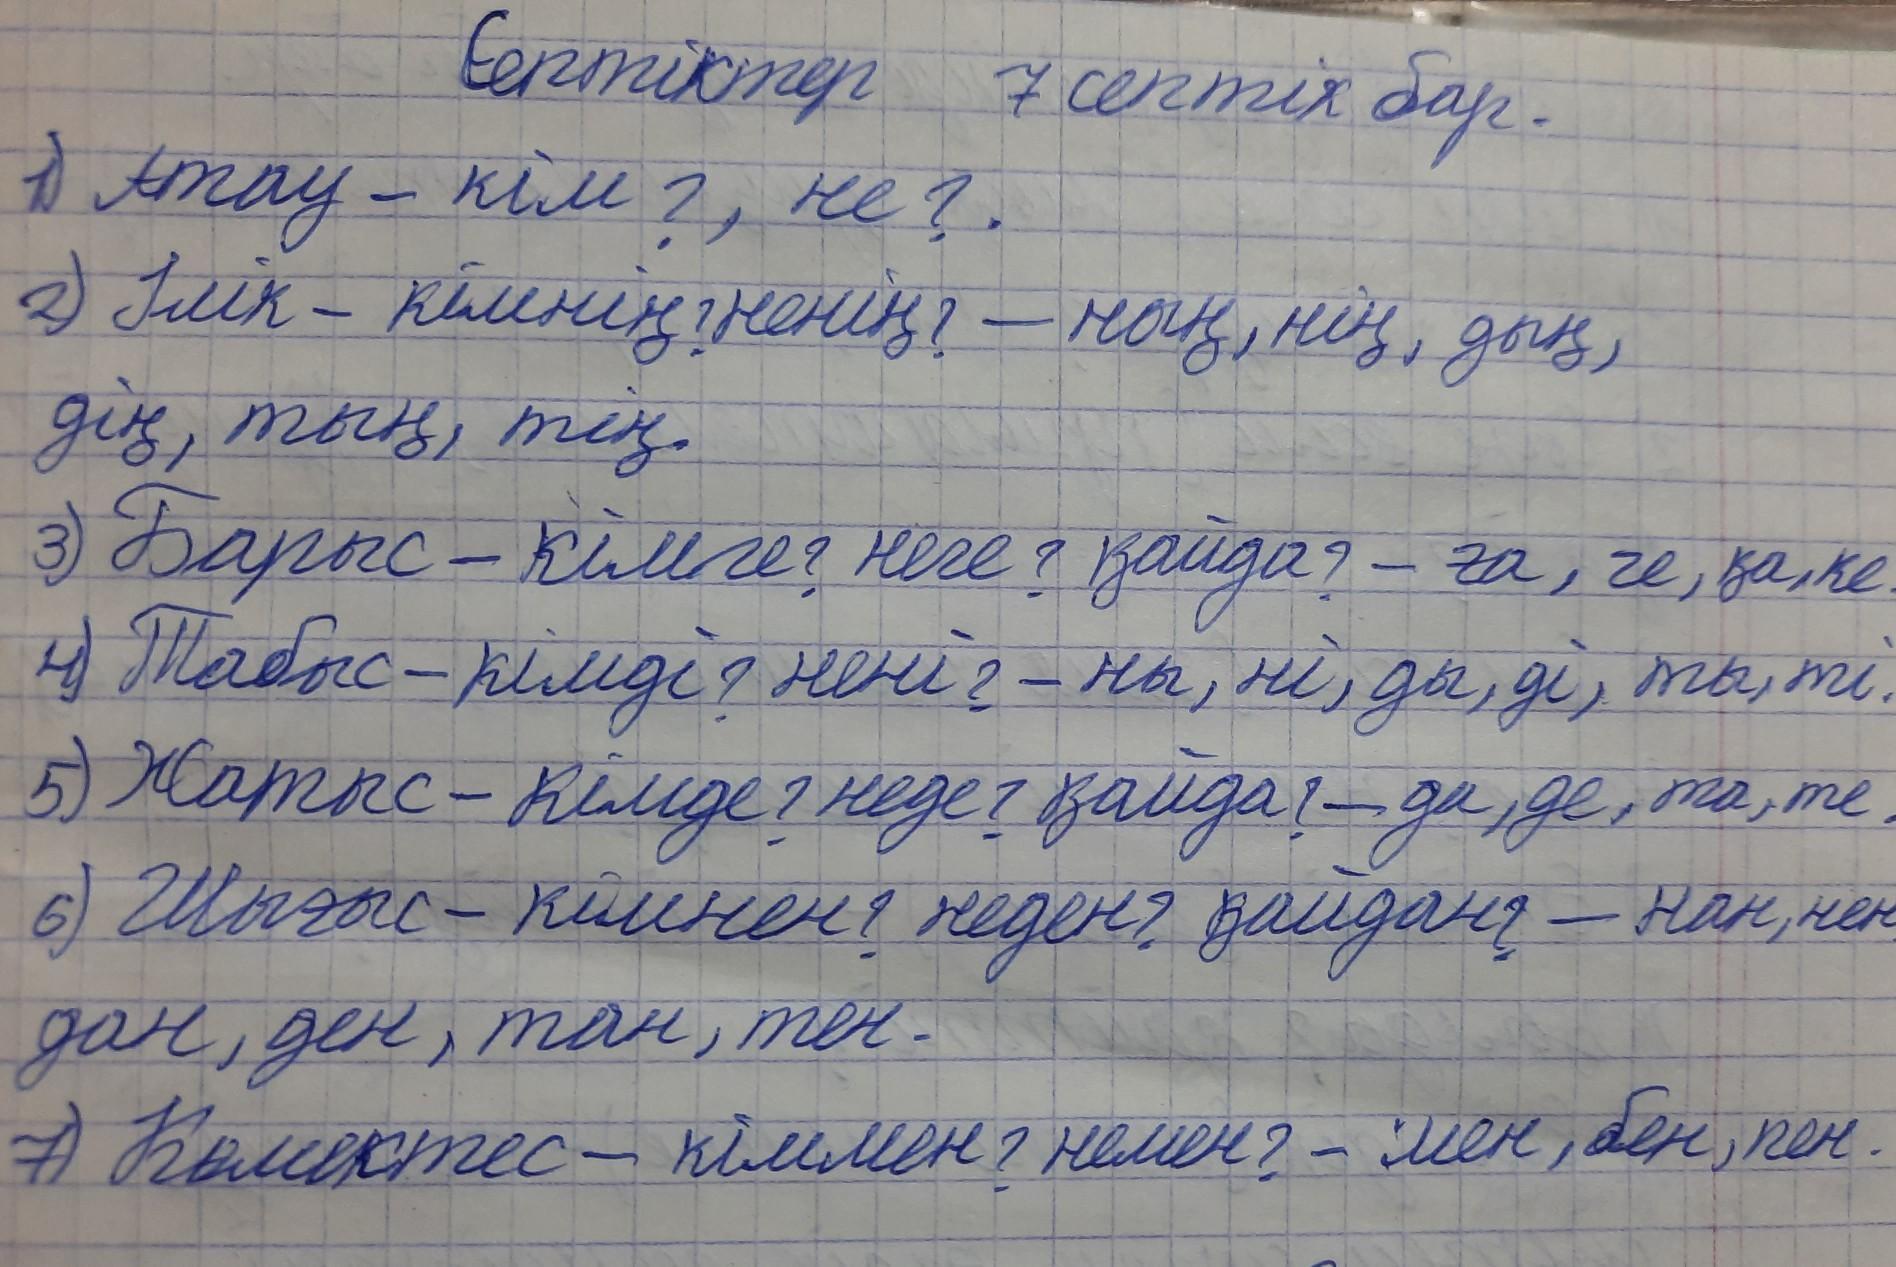 Септіктер 7 септік бар.
1) Атау – кім?, не?.
2) Ілік – кімнің? ненің? – ның, нің, дың,
дің, тың, тің.
3) Барыс – кімге? неге? қайда? – ға, ге, қа, ке.
4) Табыс – кімді? нені? – ны, ні, ды, ді, ты, ті.
5) Жатыс – кімде? неде? қайда? – да, де, та, те.
6) Шығыс – кімнен? неден? қайдан? – нан, нен,
дан, ден, тан, тен.
7) Көмектес – кіммен? немен? – мен, бен, пен.